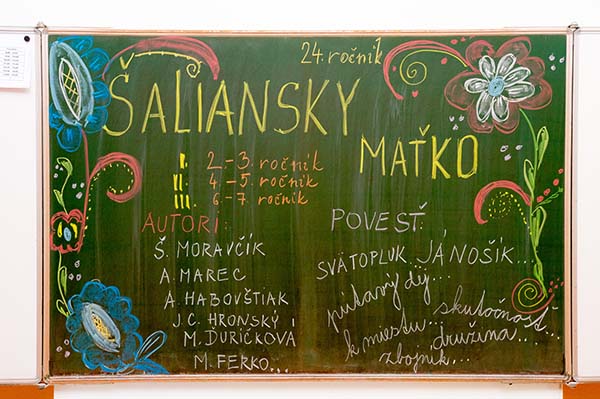 24. ročník
ŠALIANSKY
MAŤKO
I. 2.-3. ročník
II. 4.-5. ročník
III. 6-7. ročník
AUTORI:
Š. MORAVČÍK
A. MAREC
A. HABOVŠTIAK
J.C. HRONSKÝ
M. ĎURIČKOVÁ
M. FERKO...
POVESŤ:
SVÄTOPLUK, JÁNOŠÍK...
pútavý dej... skutočnosť..
k miestu.. družina..
zbojník...